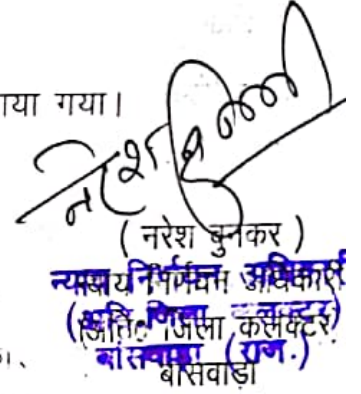 ाया गया।
नरेश
( नरेश बुनकर )
न्याय निर्णयन अधिकारी
(अति० जिला कलक्टर)
बांसवाड़ा (राज.)
बांसवाड़ा